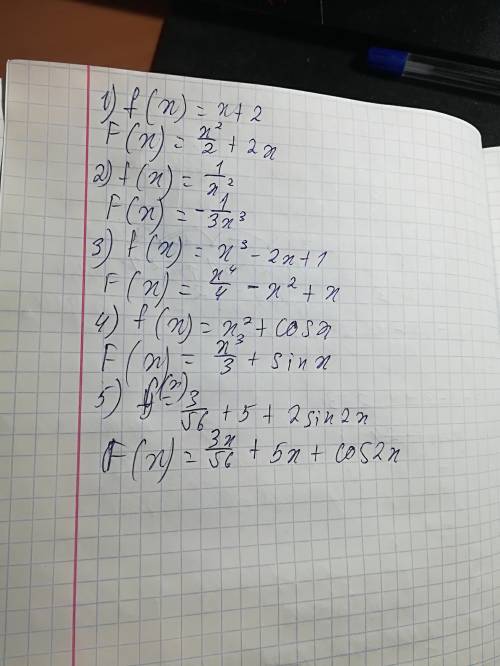 1) f(x) = x + 2
F(x) = x²/2 + 2x
2) f(x) = 1/x²
F(x) = -1/3x³
3) f(x) = x³ - 2x + 1
F(x) = x⁴/4 - x² + x
4) f(x) = x² + cosx
F(x) = x³/3 + sinx
5) f(x) = 3/√6 + 5 + 2sin2x
F(x) = 3x/√6 + 5x + cos2x